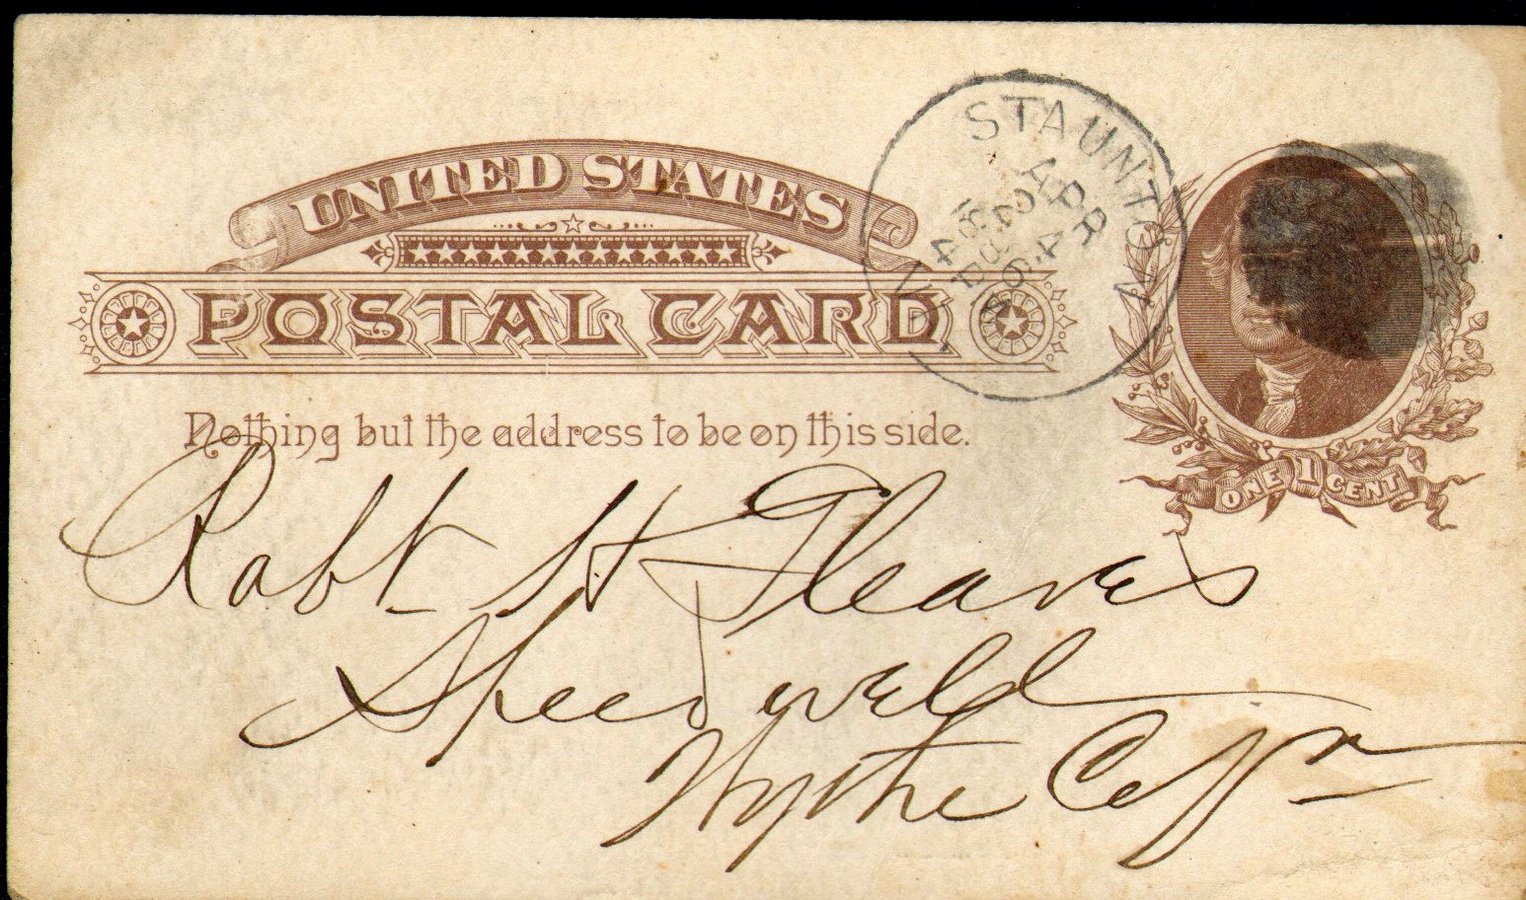 UNITED STATES
POSTAL CARD
Nothing but the address to be on this side.
STAUNTON
APR
4
ONE 1 CENT
Robt H Gleaves
Speedweld
Wythe Co Va